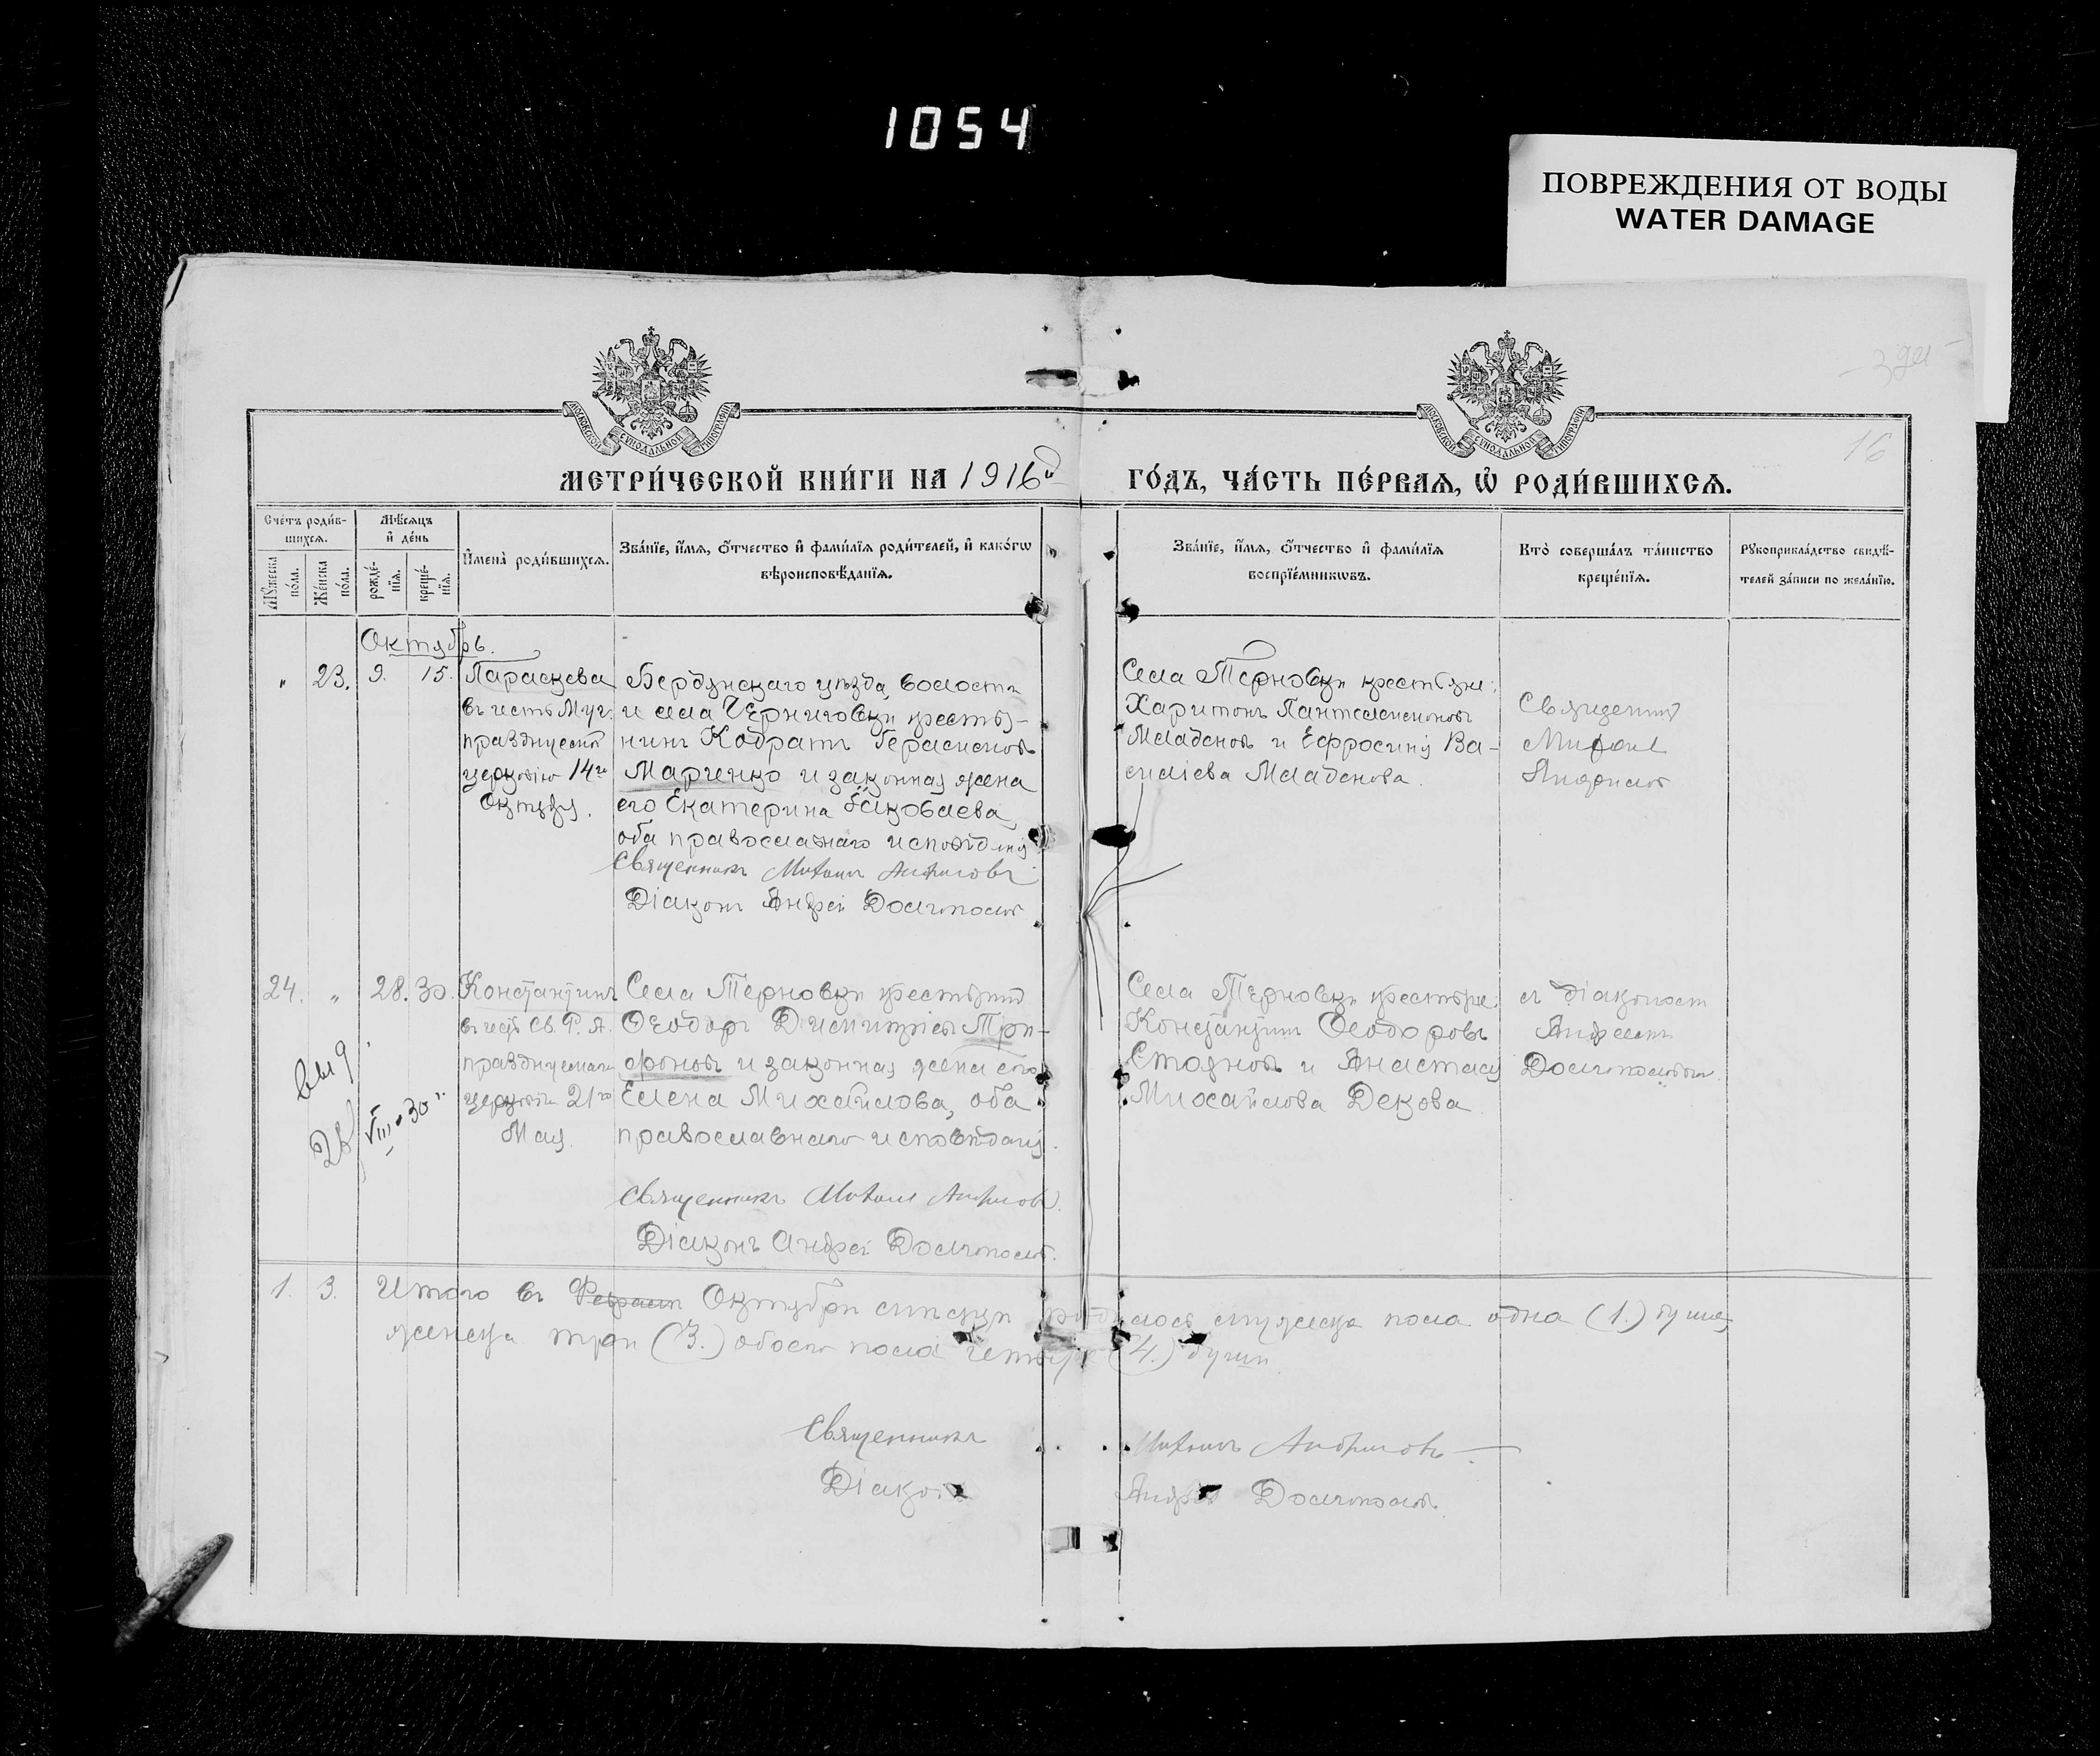 1054
ПОВРЕЖДЕНИЯ ОТ ВОДЫ
WATER DAMAGE
16
МОСКОВСКОЙ СѴНОДАЛЬНОЙ ТИПОГРАФІИ
МОСКОВСКОЙ СѴНОДАЛЬНОЙ ТИПОГРАФІИ
МЕТРИ́ЧЕСКОЙ КНИ́ГИ НА 1916й
ГО́ДЪ, ЧА́СТЬ ПЕ́РВАЯ, Ѡ҆ РОДИ́ВШИХСЯ.
Сче́тъ роди́в-
шихся.
Мꙋ́жеска по́ла.
Же́нска по́ла.
Мѣ́сяцъ
и҆ де́нь
рожде́-
нїя.
креще́-
нїя.
И҆мена̀ роди́вшихся.
Зва́нїе, и҆́мя, ѻ҆́тчество и҆ фами́лїя роди́телей, и҆ како́гѡ
вѣроисповѣ́данїя.
Зва́нїе, и҆́мя, ѻ҆́тчество и҆ фами́лїя
воспрїе́мникѡвъ.
Кто̀ соверша́лъ та́инство
креще́нїя.
Рꙋкоприкла́дство свидѣ́-
телей за́писи по жела́нїю.
Октябрь.
" 23. 9. 15.
Параскева
въ честь Муч.
празднуемой
церковію 14го
Октября.
Бердянскаго уѣзда, волости
и села Черниговки крестья-
нинъ Кодратъ Герасимовъ
Марченко и законная жена
его Екатерина
оба православнаго исповѣданія
Священникъ Михаилъ
Діаконъ Андрей Долгополовъ
Села Терновки крестьяне:
Харитонъ Пантелеимоновъ
Младеновъ и Ефросинія Ва-
силіева Младенова.
Священникъ
Михаилъ
24. " 28. 30.
Константинъ
въ честь Св. Р. А.
празднуемаго
церковію 21го
Мая.
VIII 30
Села Терновки крестьянинъ
Ѳеодоръ Димитріевъ Три-
фоновъ и законная жена его
Елена Михайлова, оба
православнаго исповѣданія.
Священникъ Михаилъ
Діаконъ Андрей Долгополовъ.
Села Терновки крестьяне:
Константинъ Ѳеодоровъ
Стояновъ и Анастасія
Михайлова Декова.
съ діакономъ
Андреемъ
Долгополовымъ.
1. 3. Итого въ Октябрѣ мѣсяцѣ родилось мужеска пола одна (1.) душа,
женска три (3.) обоего пола четыре (4.) души.
Священникъ Михаилъ
Діаконъ Андрей Долгополовъ.